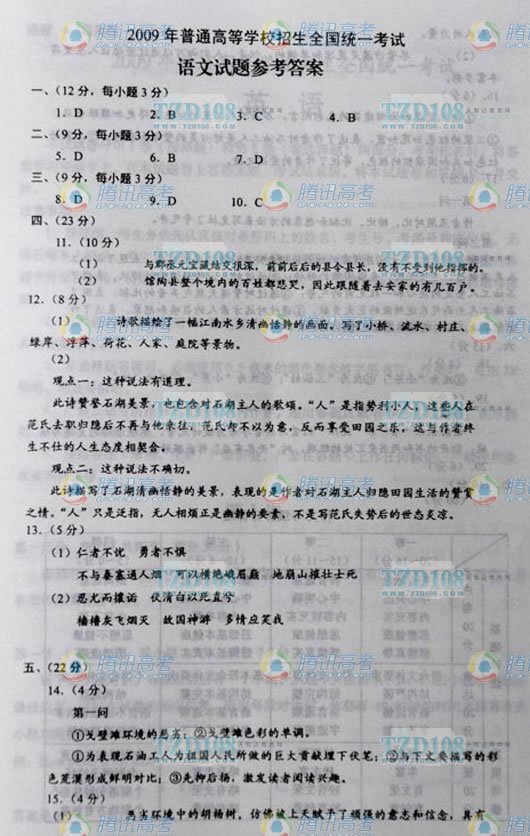 2009 年普通高等学校招生全国统一考试
语文试题参考答案
一、(12 分，每小题 3 分)
1. D 2. B 3. C 4. B
二、(9 分，每小题 3 分)
5. D 6. B 7. D
三、(9 分，每小题 3 分)
8. D 9. D 10. C
四、(23 分)
11.（10 分）
（1） 与郡豪元宝藏结交很深，前前后后的县令县长，没有不受到他指挥的。
（2） 馆陶县整个境内的百姓都悲哭，因此跟随着去安家的有几百户。
12.（8 分）
（1） 诗歌描绘了一幅江南水乡清幽恬静的画面。写了小桥、流水、村庄、
绿岸、浮萍、荷花、人家、庭院等景物。
（2）
观点一：这种说法有道理。
此诗赞誉石湖美景，也包含对石湖主人的歌颂。“人”是指势利小人，这些人在
范氏去职归隐后不再与他来往，范氏却不以为意，反而享受田园之乐，这与作者终
生不仕的人生态度相契合。
观点二：这种说法不确切。
此诗描写了石湖清幽恬静的美景，表现的是作者对石湖主人归隐田园生活的赞赏
之情。“人”只是泛指，无人相烦正是幽静的要素，不是写范氏失势后的世态炎凉。
13.（5 分）
（1）仁者不忧 勇者不惧
不与秦塞通人烟 可以横绝峨眉巅 地崩山摧壮士死
（2）忍尤而攘诟 伏清白以死直兮
樯橹灰飞烟灭 故国神游 多情应笑我
五、(22 分)
14.（4 分）
第一问
①戈壁滩环境的恶劣；②戈壁滩色彩的单调。
①为表现石油工人为祖国人民所做的巨大贡献埋下伏笔；②与下文要描写的彩
色荒漠形成鲜明对比；③先抑后扬，激发读者阅读兴趣。
15.（4 分）
（1） 恶劣环境中的胡杨树，仿佛被上天赋予了顽强的意志和信念，具有
腾讯高考
GAOKAO.QQ.COM
TZD108
TZD108.COM